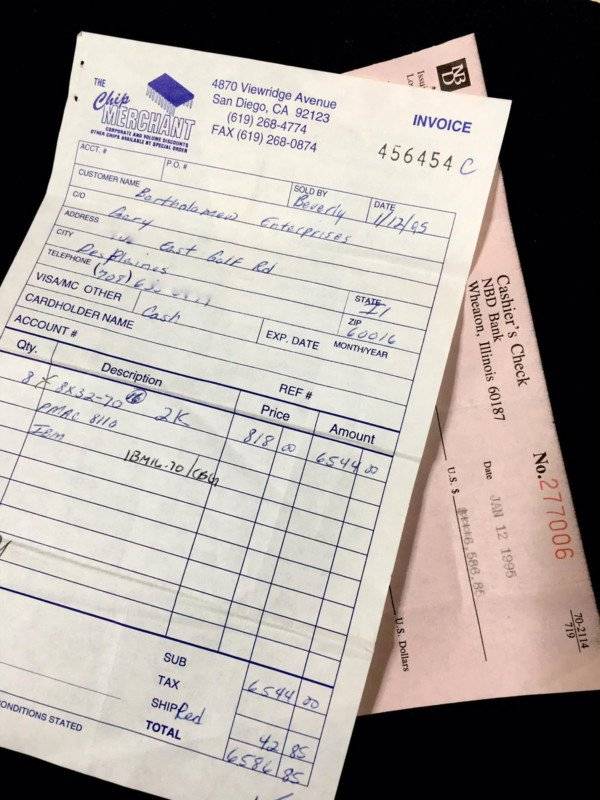 THE
Chip
MERCHANT
CORPORATE AND VOLUME DISCOUNTS
OTHER CHIPS AVAILABLE BY SPECIAL ORDER
4870 Viewridge Avenue
San Diego, CA 92123
(619) 268-4774
FAX (619) 268-0874
INVOICE
456454 C
ACCT. #
P.O. #
SOLD BY
Beverly
DATE
1/12/95
CUSTOMER NAME
Bartholamew Enterprises
C/O
Gary
ADDRESS
East Golf Rd
CITY
Des Plaines
STATE
Il
TELEPHONE
(708)
ZIP
60016
VISA/MC OTHER
Cash
EXP. DATE
MONTH/YEAR
CARDHOLDER NAME
ACCOUNT #
REF #
Qty.
Description
Price
Amount
8 8X32-70 2K
818 00
6544 00
PMAC 8110
IBM
IBM16.70/
SUB
6544 00
TAX
SHIP Red
42 85
TOTAL
6586 85
CONDITIONS STATED
NBD
Cashier's Check
NBD Bank
Wheaton, Illinois 60187
No. 277006
Date JAN 12 1995
70-2114
719
U.S. $ 6,586.85
U.S. Dollars